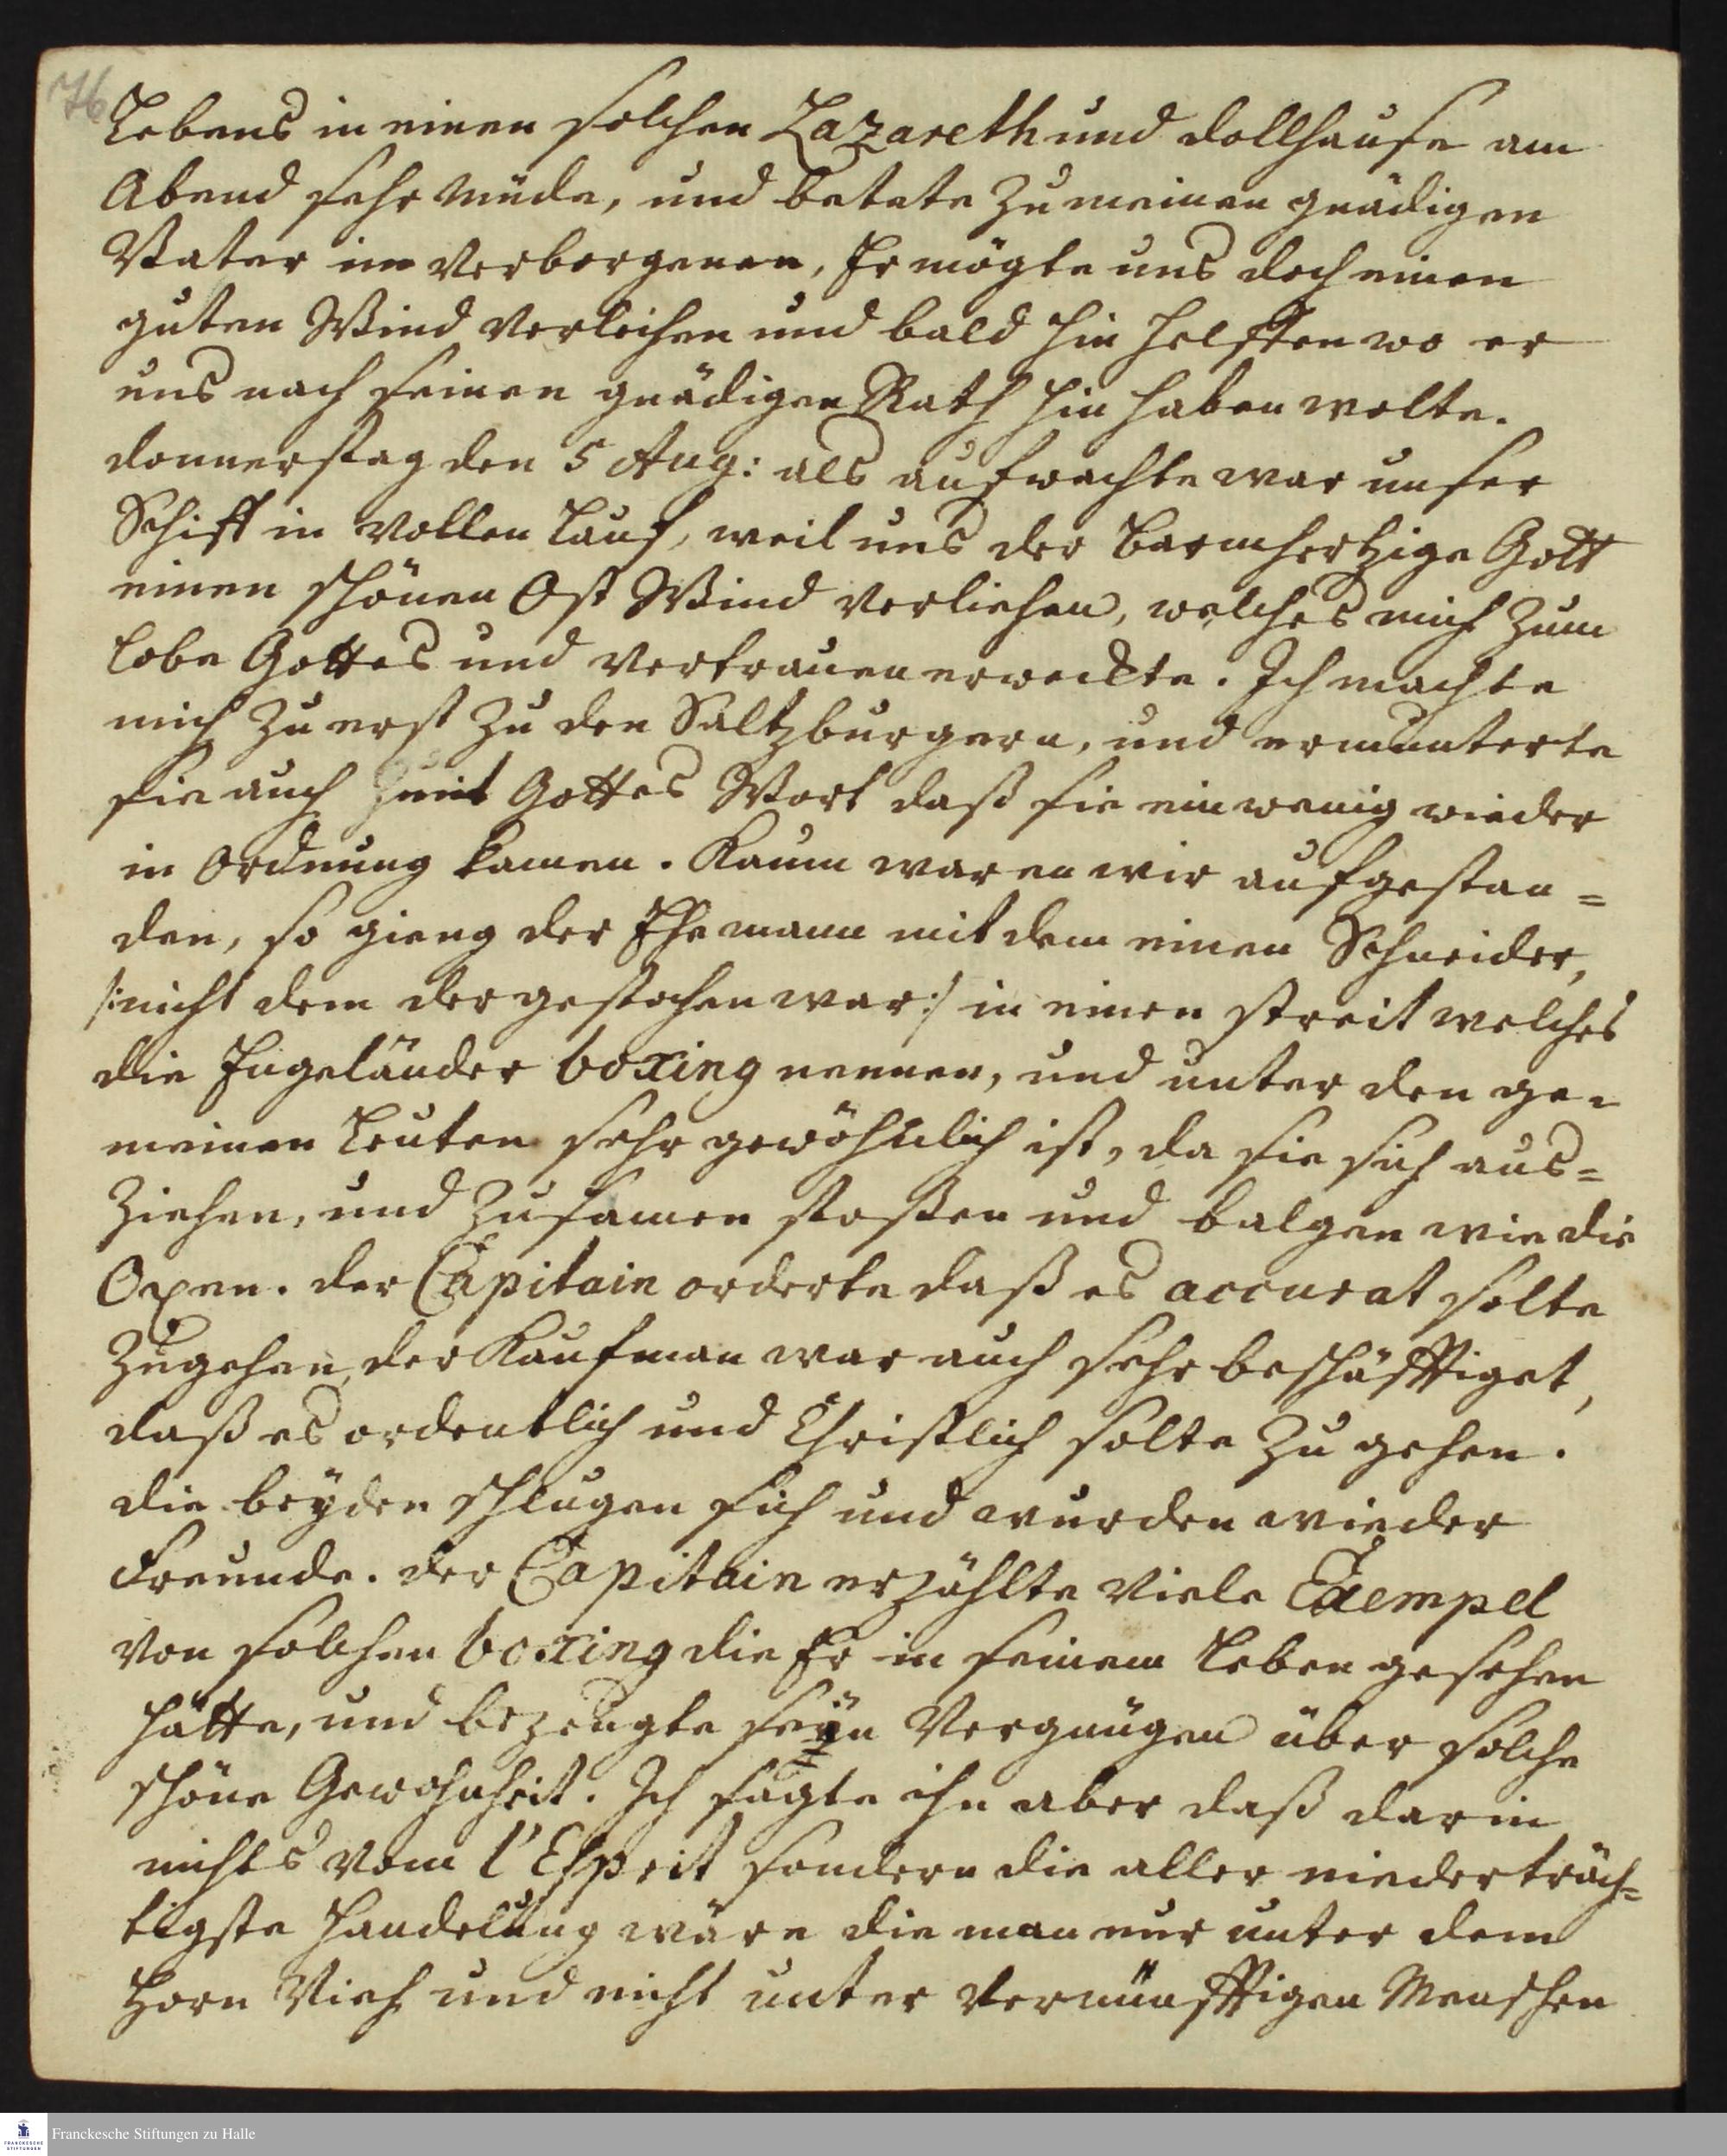 76
Lebens in einen solchen Lazareth und dollhause am
Abend sehr müde, und betete zu meinen gnädigen
Vater im Verborgenen, Er mögte uns doch einen
guten Wind verleihen und bald hin helffen wo er
uns nach seinen gnädigen Rath hin haben wolte.
donnerstag den 5 Aug: als aufwachte war unser
Schiff in vollen Lauf, weil uns der barmhertzige Gott
einen schönen Ost Wind verliehen, welches mich zum
Lobe Gottes und vertrauen erweckte. Ich machte
mich zu erst zu den Saltzburgern, und ermunterte
sie auch mit Gottes Wort daß sie ein wenig wieder
in Ordnung kamen. Kaum waren wir aufgestan=
den, so gieng der Ehemann mit dem einen Schneider,
/: nicht dem der gestochen war :/ in einen streit welches
die Engeländer boxing nennen, und unter den ge=
meinen Leuten sehr gewöhnlich ist, da sie sich aus=
ziehen, und zusamen stoßen und balgen wie die
Oxen. der Capitain orderte daß es accurat solte
zugehen, der Kaufman war auch sehr beschäfftiget,
daß es ordentlich und Christlich solte zu gehen.
die beyden schlugen sich und wurden wieder
Freunde. der Capitain erzählte viele Exempel
von solchen boxing die Er in seinem Leben gesehen
hätte, und bezeugte sein Vergnügen über solche
schöne Gewohnheit. Ich sagte ihn aber daß darin
nichts vom l'Esprit sondern die aller niederträch=
tigste Handelung wäre die man nur unter dem
Horn Vieh und nicht unter vernünfftigen Menschen
Franckesche Stiftungen zu Halle
FRANCKESCHE
STIFTUNGEN